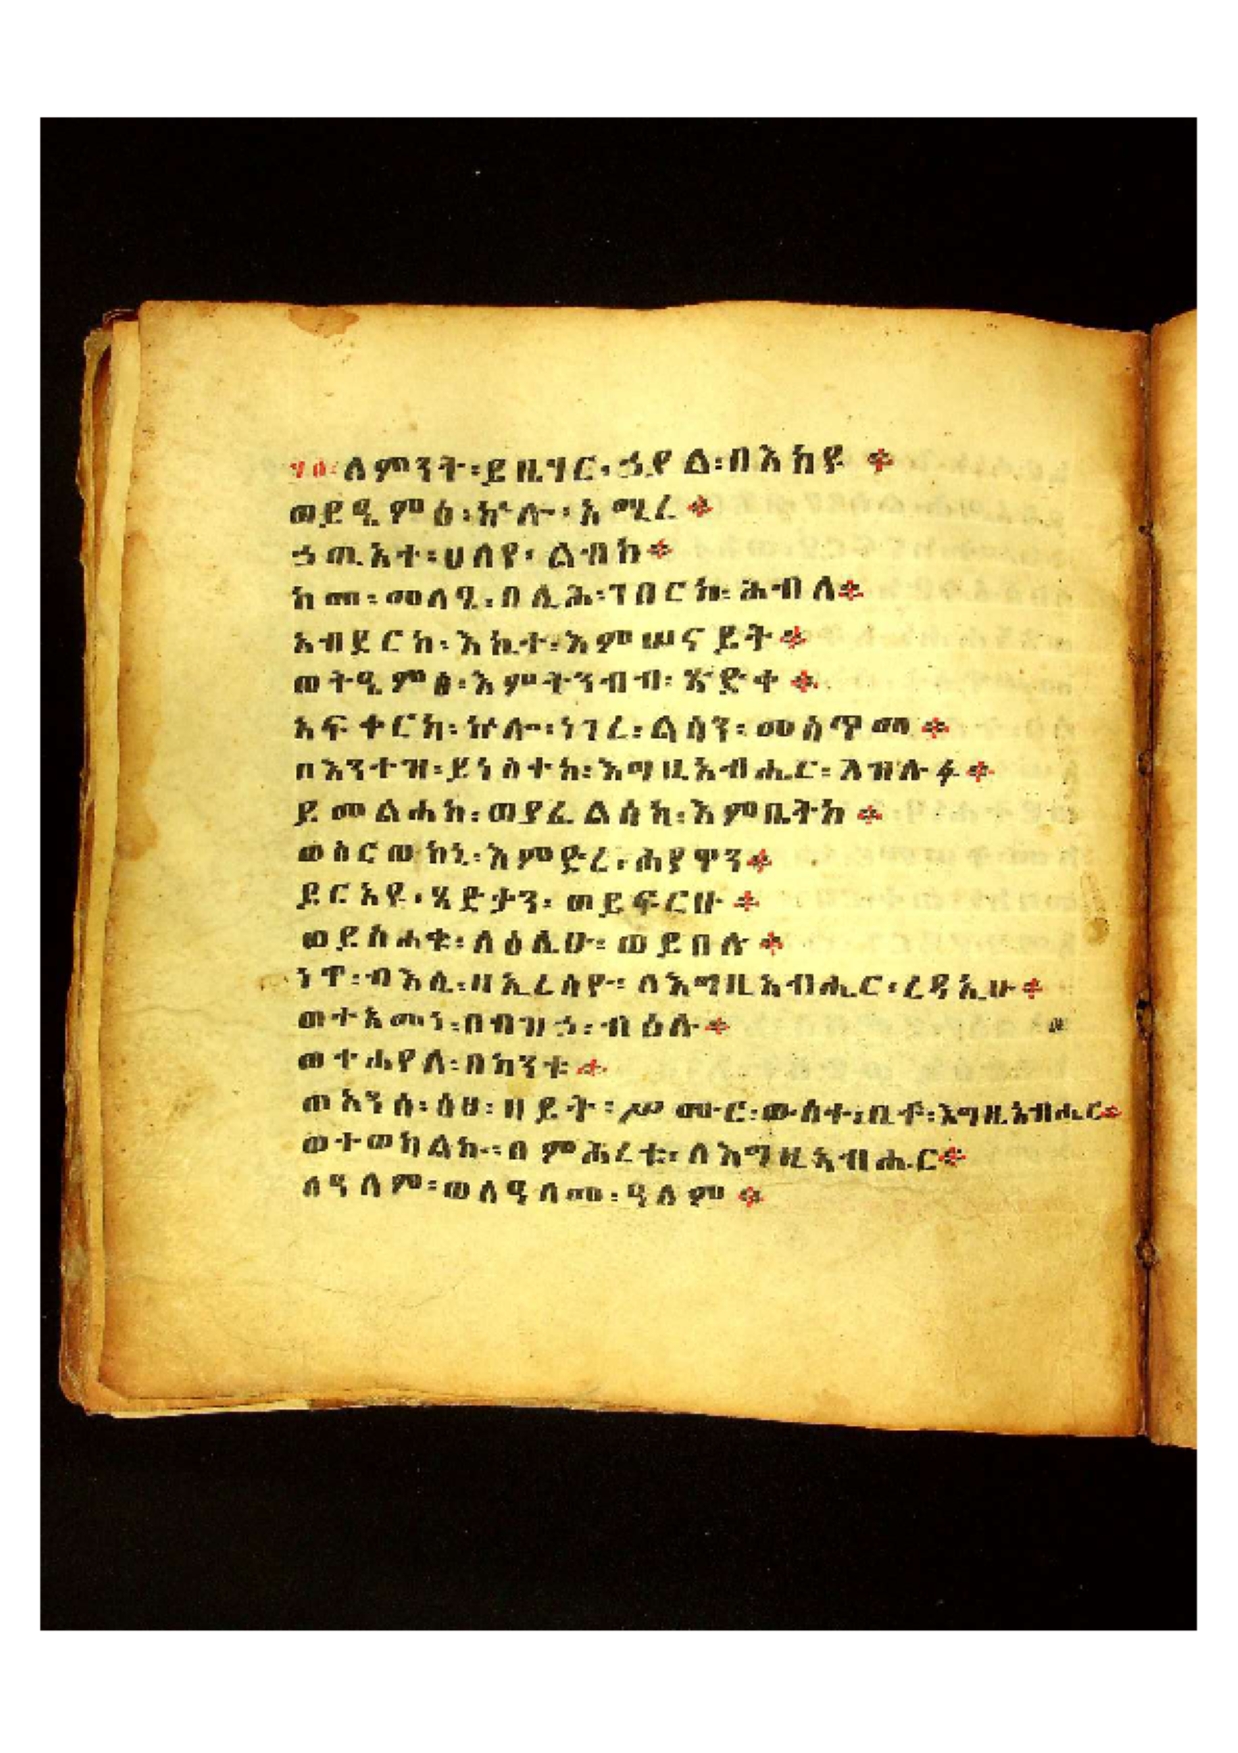 ፶፩፡ ለምንት፡ይዜኀር፡ኃያል፡በእከዩ ፨
ወይዔምፅ፡ኵሎ፡አሚረ ፨
ኃጢአተ፡ሀለየ፡ልብከ ፨
ከመ፡መላፄ፡በሊሕ፡ገበርከ፡ሕብለ ፨
አብደርከ፡እኪተ፡እምሠናይት ፨
ወትዔምፅ፡እምትንብብ፡ጽድቀ ፨
አፍቀርከ፡ኵሎ፡ነገረ፡ልሳን፡መስጥመ ፨
በእንተዝ፡ይነስተከ፡እግዚአብሔር፡ለዝሉፉ ፨
ይመልሐከ፡ወያፈልሰከ፡እምቤትከ ፨
ወሥርወከኒ፡እምድረ፡ሕያዋን ፨
ይርአዩ፡ጻድቃን፡ወይፍርሁ ፨
ወይስሐቁ፡ላዕሌሁ፡ወይበሉ ፨
ነዋ፡ብእሲ፡ዘኢረሰዮ፡ለእግዚአብሔር፡ረዳኢሁ ፨
ወተአመነ፡በብዝኃ፡ብዕሉ ፨
ወተኀየለ፡በከንቱ ፨
ወአንሰ፡ከመ፡ዘይት፡ሥሙር፡ውስተ፡ቤቱ፡ለእግዚአብሔር ፨
ወተወከልኩ፡በምሕረቱ፡ለእግዚአብሔር ፨
ለዓለም፡ወለዓለመ፡ዓለም ፨